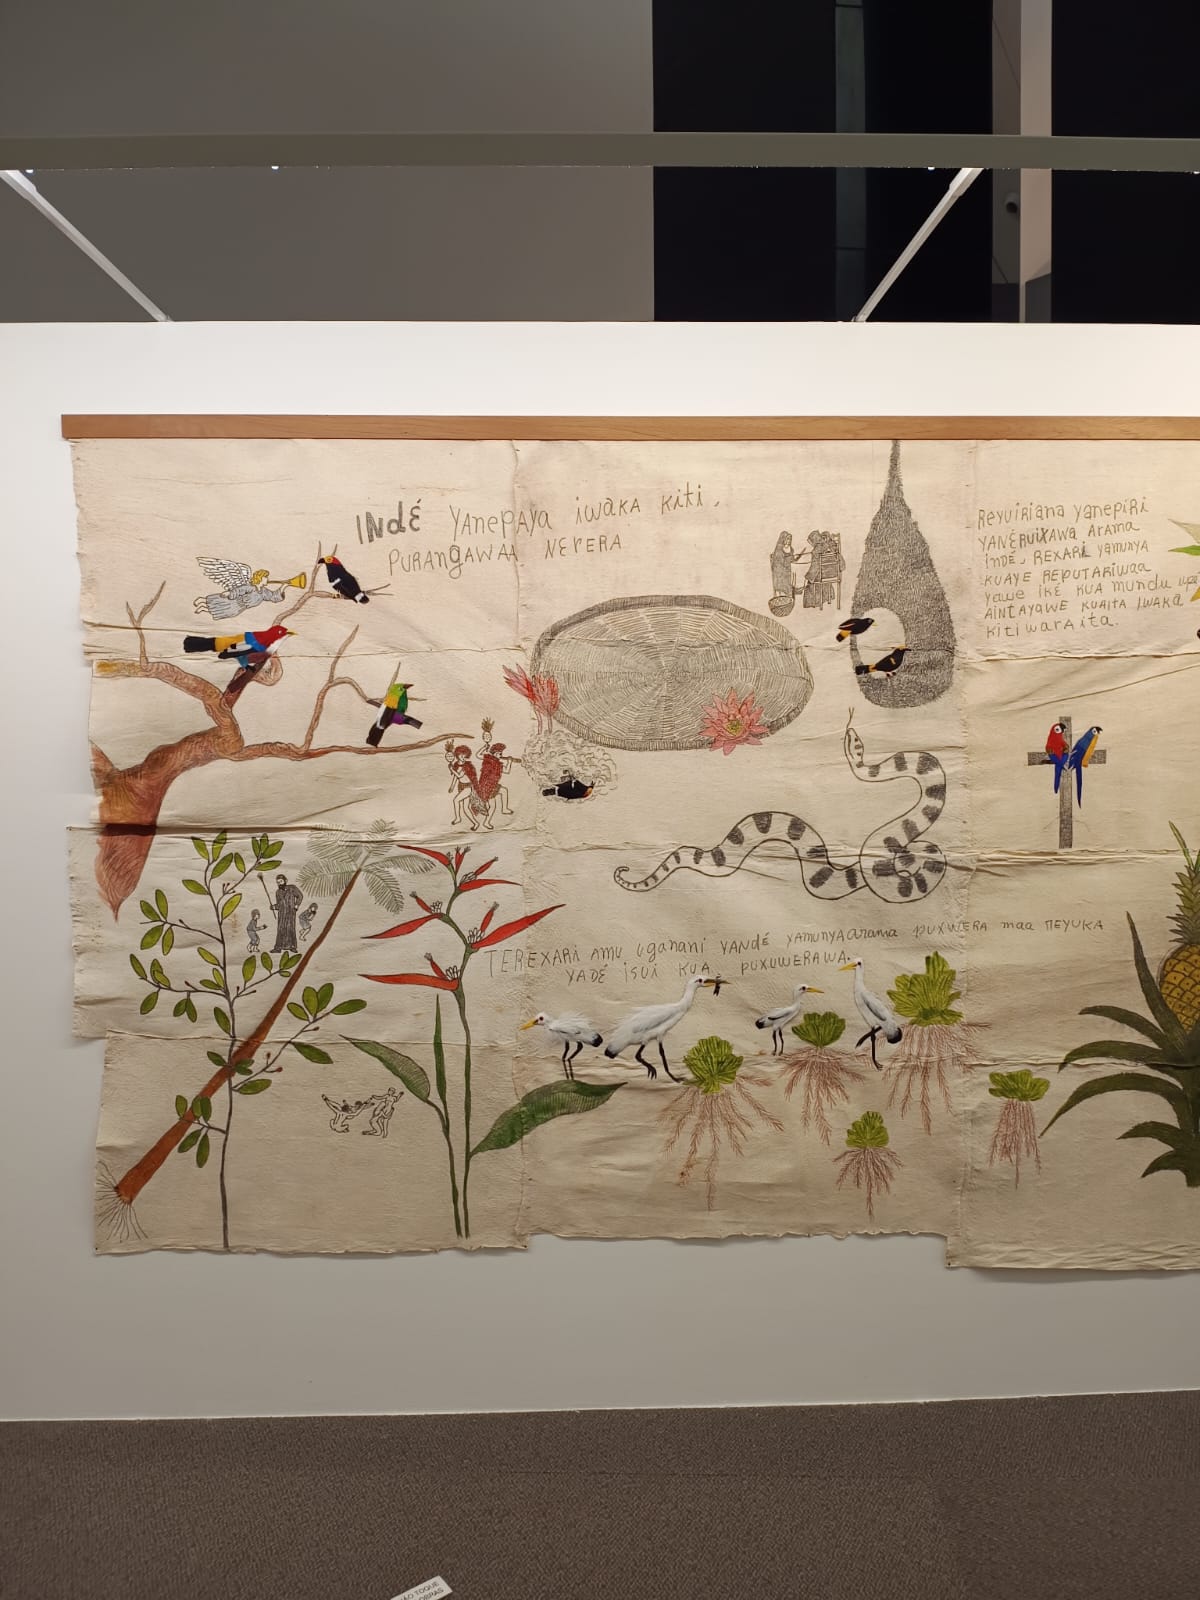 INdÉ YANEPAYA iwaka kiti.
PURANGAWAA NERERA
Reyuiriana yanepiri
YANERUIXAWA ARAMA
INDÉ. REXARI yamunya
KUAYE REPUTARIWAA
yawe IKÉ KUA mundu upé
AINTAYAWE KUAITA IWAKA
Kitiwaraita.
TEREXARI AMU uganani YANdÉ YAMUNYAarama puxWERA maa
YADÉ isui KUA PUXUWERAWA.
TOQUE
OBRAS